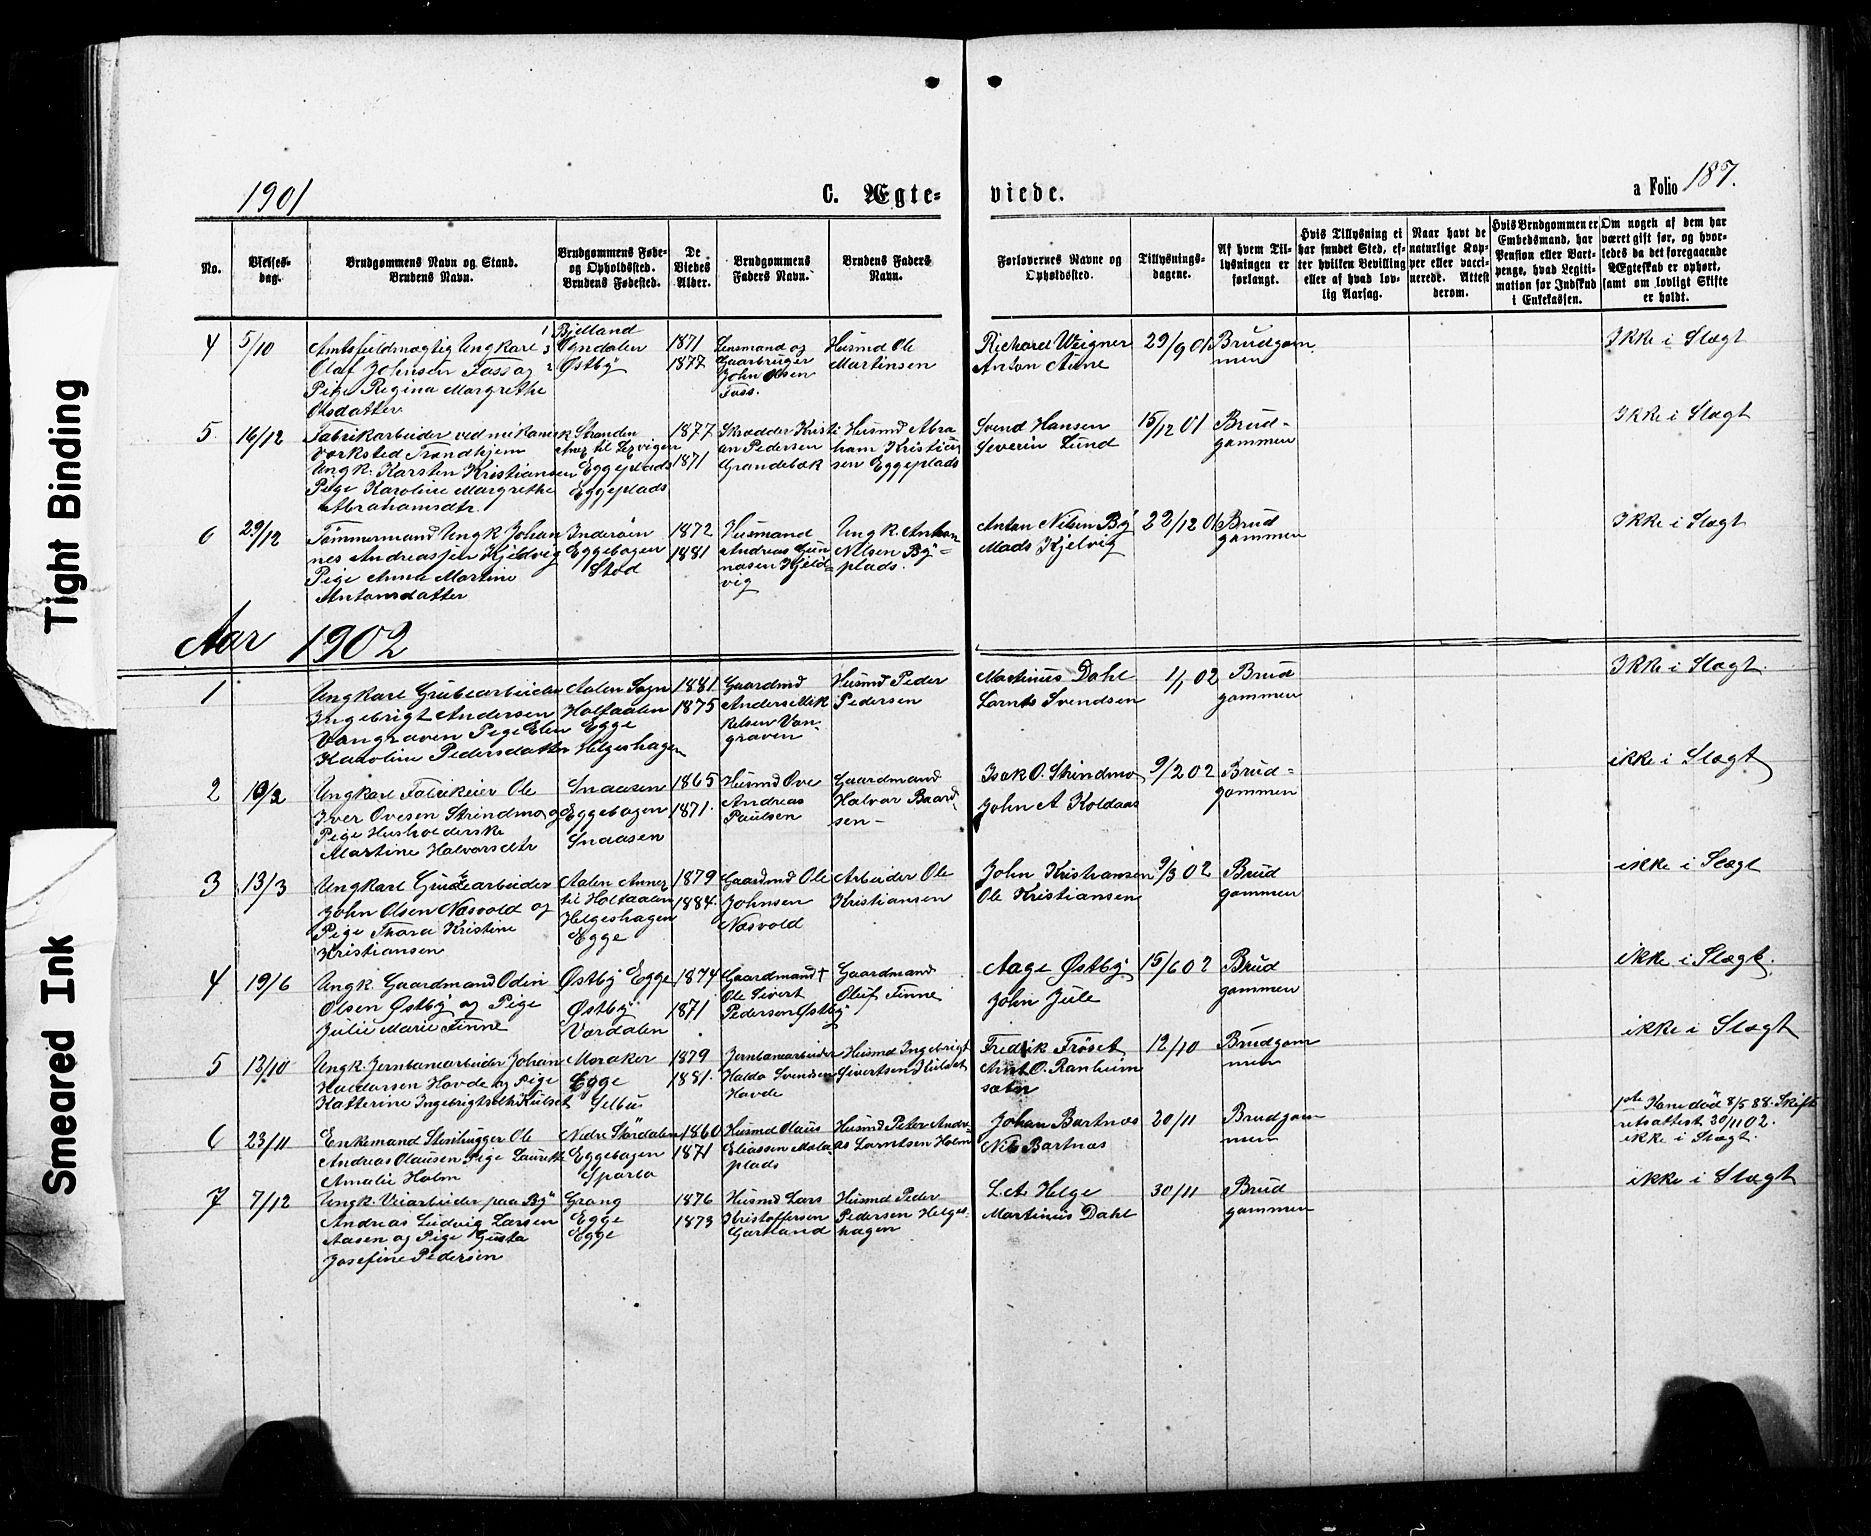 Tight Binding
Smeared Ink
1901
C. Ægte-
viede.
a Folio 187.
No.
Vielses-
dag.
Brudgommens Navn og Stand.
Brudens Navn.
Brudgommens Føde-
og Opholdssted.
Brudens Fødested.
De
Viedes
Alder.
Brudgommens
Faders Navn.
Brudens Faders
Navn.
Forlovernes Navne og
Opholdssted.
Tillysnings-
dagene.
Af hvem Til-
lysningen er
forlangt.
Hvis Tillysning ei
har fundet Sted, ef-
ter hvilken Bevilling
eller af hvad lov-
lig Aarsag.
Naar havt de
naturlige Kop-
per eller vacci-
nerede. Attest
derom.
Hvis Brudgommen er
Embedsmand, har
Pension eller Vart-
penge, hvad Legiti-
mation for Indskud
i Enkekassen.
Om nogen af dem har
været gift før, og hvor-
ledes da det foregaaende
Ægteskab er ophørt,
samt om lovligt Skifte
er holdt.
4
5/10
Amtsfuldmægtig Ungkarl
Olaf Johnsen Foss og
Pige Regina Margrethe
Olsdatter
1 Bjelland
3 Ogndalen
2 Østby
1871
1877
Lensmand og
Gaarbruger
John Olsen
Foss.
Husmd Ole
Martinsen
Richard Weigner
Anton Aune
29/9 01
Brudgom
men
Ikke i Slægt
5
16/12
Fabrikarbeider ved mekanisk
Værksted Trondhjem
Ungk. Karsten Kristiansen
Pige Karoline Margrethe
Abrahamsdtr.
Stranden
Anex til Lexvigen
Eggeplads
Eggeplads
1877
1871
Skrædder Kristi
an Pedersen
Grandebæk
Husmd Abra
ham Kristian
sen Eggeplads
Svend Hansen
Severin Lund
15/12 01
Brud-
gommen
Ikke i Slægt
6
29/12
Tømmermand Ungk Johan
nes Andreassen Kjeldvig
Pige Anna Martine
Antonsdatter
Inderøen
Eggebogen
Stod
1872
1881
Husmand
Andreas Gun
nasen Kjeld=
vig
Ungk. Anton
Nilsen By=
plads.
Anton Nilsen By
Mads Kjelvig
22/12 01
Brud
gommen
Ikke i Slægt
Aar 1902
1
Ungkarl Grubearbeider
Ingebrigt Andersen
Vangraven Pige Elen
Karoline Pedersdatter
Aalen Sogn
Holtaalen
Egge
Helgeshagen
1881
1875
Gaardmd
Anders Mik
kelsen Van-
graven
Husmd Peder
Pedersen
Martinus Dahl
Larnts Svendsen
1/1 02
Brud
gommen
Ikke i Slægt.
2
Ungkarl Fabrikeier Ole
Iver Ovesen Strindmo og
Pige Husholderske
Martine Halvorsdtr
Snaasen
Eggebogen
Snaasen
1865
1871.
Husmd Ove
Andreas
Paulsen
Gaardmand
Halvor Baard
sen-
Isak O. Strindmo
John A Koldaas
9/2 02
Brud=
gommen
ikke i Slægt
3
13/3
Ungkarl Grubearbeider
John Olsen Næsvold og
Pige Thora Kristine
Kristiansen
Aalen Annex
til Holtaalen
Helgeshagen
Egge
1879
1884.
Gaardmd Ole
Johnsen
Næsvold
Arbeider Ole
Kristiansen
John Kristiansen
Ole Kristiansen
9/3 02
Brud
gommen
ikke i Slægt
4
19/6
Ungk. Gaardmand Odin
Olsen Østby og Pige
Julie Marie Finne
Østby Egge
Østby
Værdalen
1874
1871
Gaardmand †
Ole Sivert
Pederson Østby
Gaardmand
Oluf Finne
Aage Østby
John Jule
15/6 02
Brud
gommen
ikke i Slægt.
5
12/10
Ungk. Jernbanearbeider Johan
Haldorsen Hovde og Pige
Katterine Ingebrigtsdtr Kulset
Meraker
Egge
Selbu
1879
1881.
Jernbanearbeider
Haldo Svendsen
Hovde
Husmd Ingebrigt
Sivertsen Kulset
Fredrik Frøset
Arnt O. Ranheim
sætr
12/10
Brudgom
men
ikke i Slægt
6
23/11
Enkemand Stenhugger Ole
Andreas Olausen Pige Laurette
Amalie Holm
Nedre Størdalen
Eggebogen
Sparbo
1860
1871
Husmd Olaus
Eliassen Mæla
plads
Husmd Peter Andre-
as Larntsen Holm
Johan Bartnæs
Nils Bartnæs
20/11
Brudgom
men
1ste Kone død 8/5 88. Skifte
retsattest 20/11 02.
ikke i Slægt.
7
7/12
Ungk. Veiarbeider paa By
Andreas Ludvig Larsen
Aasen og Pige Gusta
Josefine Pedersen
Grong
Egge
Egge
1876
1873
Husmd Lars
Kristoffersen
Gartland
Husmd Peder
Pedersen Helges-
hagen
L. A. Helge
Martinus Dahl
30/11
Brud
gommen
ikke i Slægt